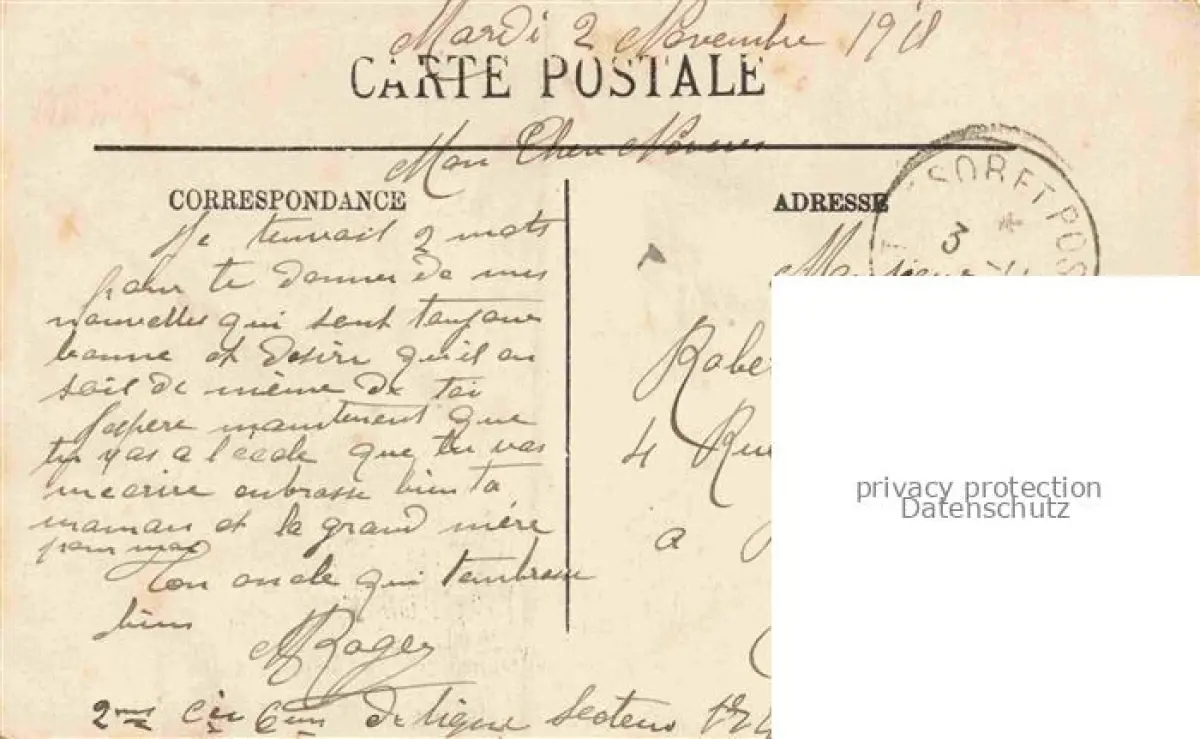 Mardi 2 Novembre 191
CARTE POSTALE
Mon Cher Neveu
CORRESPONDANCE
Je tenvoit 2 mots
pour te donner de mes
nouvelles qui sont toujours
bonne et désire qu'il en
soit de même de toi
Jespere maintenent que
tu vas a l'école que tu vas
mecrire enbrasse bien ta
maman et la grand mère
pour moi
Ton oncle qui tembrasse
bien
Roger
2me Cie 6me De ligne Secteur
ADRESSE
TRESOR ET POS
3
Monsieur
Robe
4 Rue
a
privacy protection
Datenschutz